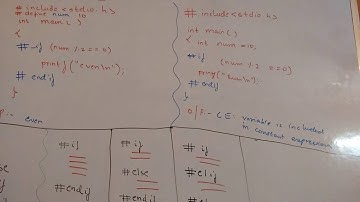 # include<stdio.h>
# define num 10
int main( )
{
# if (num % 2 == 0)
printf("even\n");
# endif
even
# include<stdio.h>
int main( )
{ int num = 10;
# if (num % 2 == 0)
# endif
O/P - CE: variable is included in constant expression
# if
# endif
# if
# else
# endif
# if
# elif
#
#